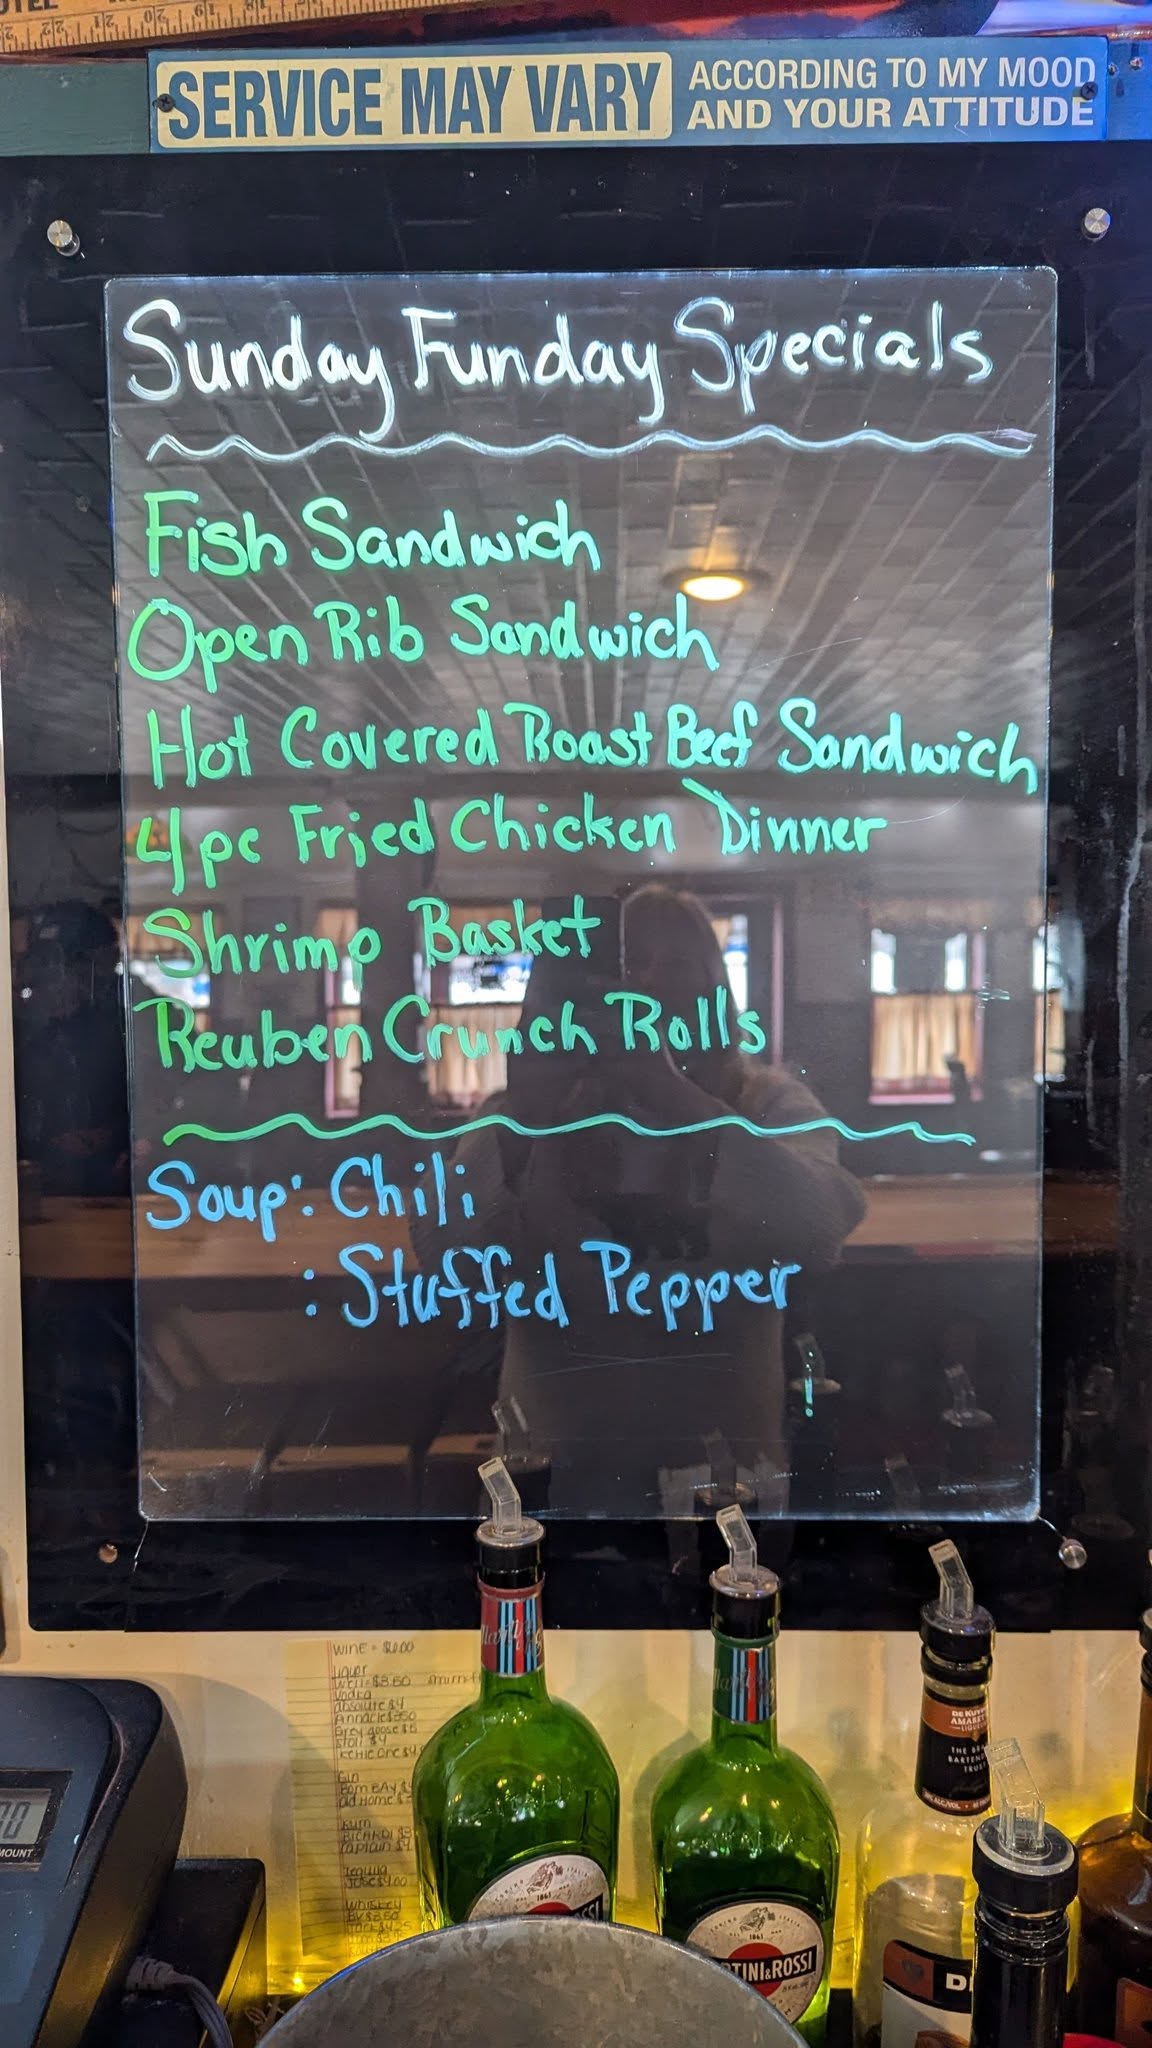 SERVICE MAY VARY
ACCORDING TO MY MOOD
AND YOUR ATTITUDE
Sunday Funday Specials
Fish Sandwich
Open Rib Sandwich
Hot Covered Roast Beef Sandwich
4pc Fried Chicken Dinner
Shrimp Basket
Reuben Crunch Rolls
Soup: Chili
: Stuffed Pepper
WINE =
Liquor
Vodka
absolute $4
Grey goose
Stoli $4
Ketle One $4
Gin
Bom BAy
Old Home
Rum
BICARDI
Captain
Tequila
WHISKEY
1861
MARTINI&ROSSI
1861
DE KUYPER
AMARETTO
LIQUEUR